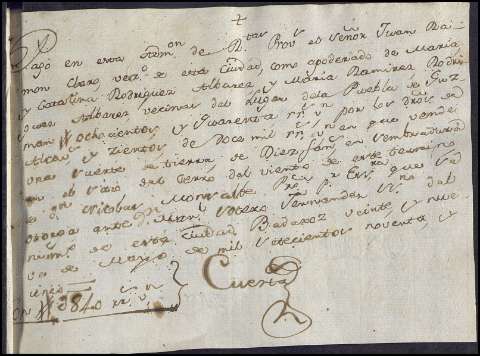 +
Pagó en esta Admon de Rtas Provs el Señor Juan Rai
mon Claro vezo de esta Ciudad, como apoderado de Maria
y Catalina Rodriguez Albarez y Maria Ramirez Rodri
guez Albarez vecinas del Lugar dela Puebla de
man ochocientos y quarenta rrs vn por los dros de
Alcavs y zientos de Doce mil rrs vn en que vende
una suerte de tierra de Diez fans en sembradura
en el sitio del Cerro del viento de este termino
a dn Vitobas Monsalbe
otorga ante dn Man Botero Fernandez
numo de esta ciudad Badajoz veinte y nue
ve de Mayo de mil setecientos noventa y
cinco
Son 840 rrs vn
Cuesta